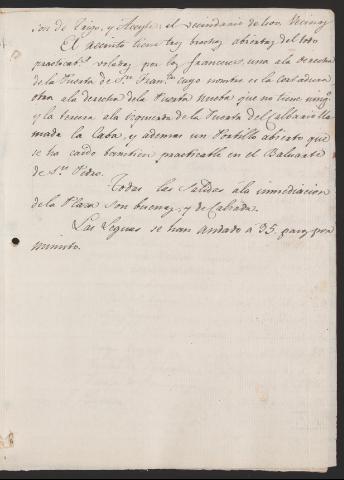 ion de Trigo, y Aceyte, el secundario de los Vecinos
El recinto tiene tres brechas abiertas del todo
practicab.s voladas por los franceses, una a la derecha
de la Puerta de S.n Fran.co cuyo nombre es la Cortadura
otra a la derecha de la Puerta Nueba que no tiene ning.o
y la tercera a la izquierda de la Puerta del Calbario lla
mada la Caba, y ademas un Portillo abierto que
se ha caido tambien practicable en el Baluarte
de S.n Pedro.
Todas las Salidas a la inmediacion
de la Plaza son buenas, y de Calzada.
Las Leguas se han andado á 95 pasos por
minuto.